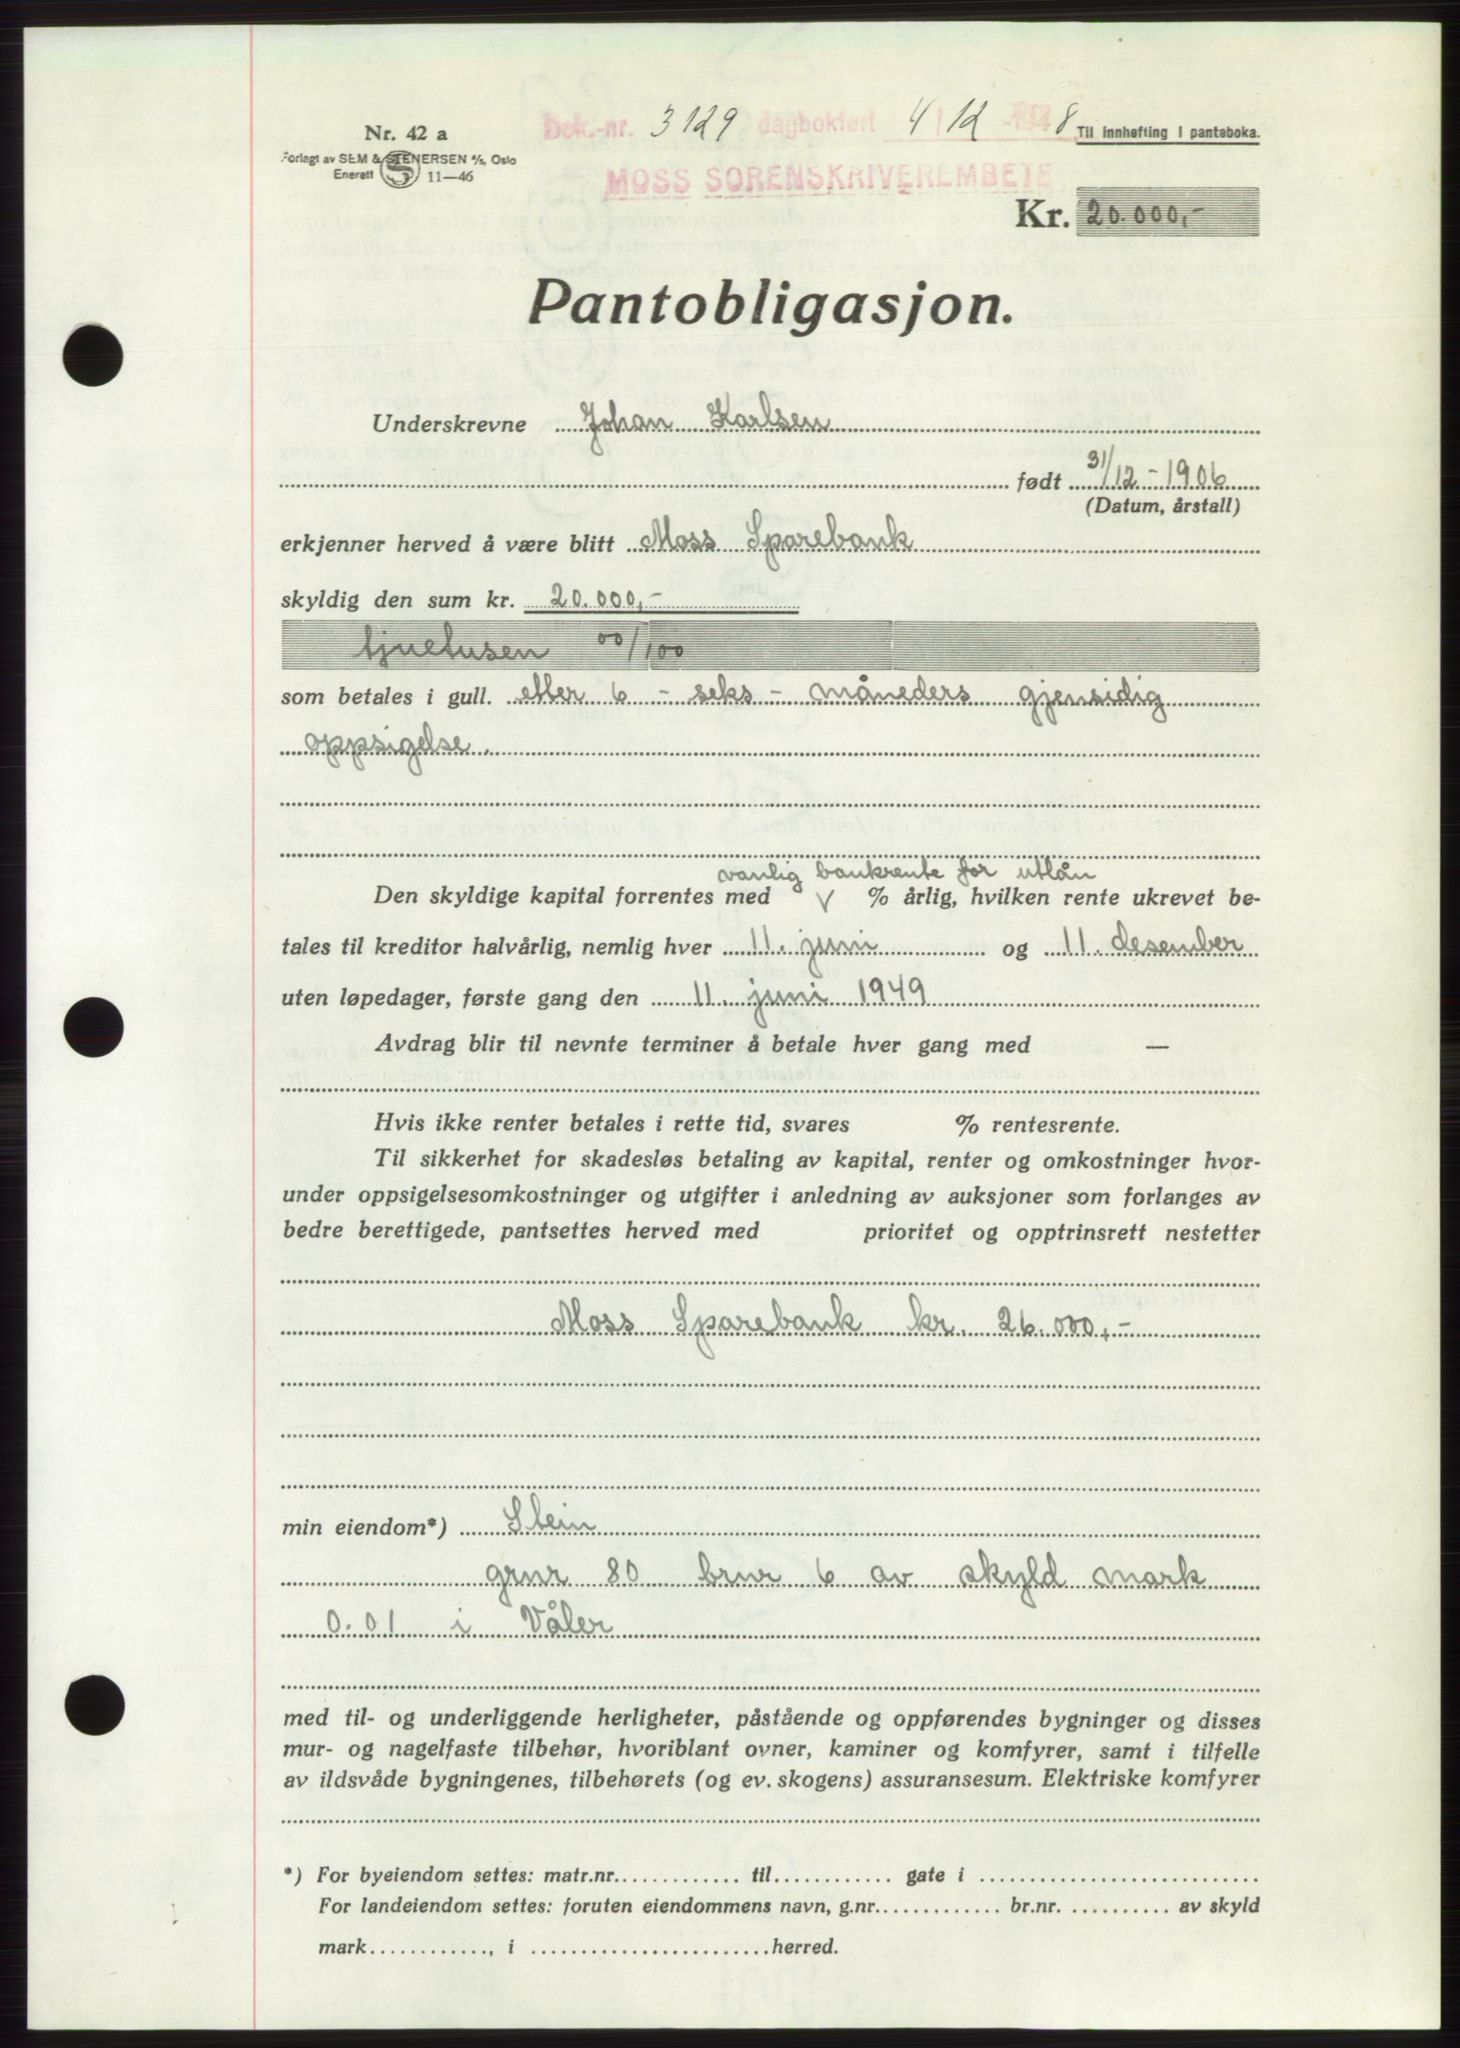 Dok.-nr. 3129 dagbokført 4/12 1948
Nr. 42 a
Til innhefting i panteboka.
Forlagt av SEM & STENERSEN A/S, Oslo
Enerett S 11—46
MOSS SORENSKRIVEREMBETE
Kr. 20.000,-
Pantobligasjon.
Underskrevne Johan Karlsen
født 31/12 - 1906
(Datum, årstall)
erkjenner herved å være blitt Moss Sparebank
skyldig den sum kr. 20.000,-
tjuetusen 00/100
som betales i gull. etter 6 - seks - måneders gjensidig
oppsigelse.
vanlig bankrente for utlån
Den skyldige kapital forrentes med √ % årlig, hvilken rente ukrevet be-
tales til kreditor halvårlig, nemlig hver 11. juni og 11. desember
uten løpedager, første gang den 11. juni 1949
Avdrag blir til nevnte terminer å betale hver gang med —
Hvis ikke renter betales i rette tid, svares % rentesrente.
Til sikkerhet for skadesløs betaling av kapital, renter og omkostninger hvor-
under oppsigelsesomkostninger og utgifter i anledning av auksjoner som forlanges av
bedre berettigede, pantsettes herved med prioritet og opptrinsrett nestetter
Moss Sparebank kr. 26.000,-
min eiendom*) Stein
grnr 80 brnr 6 av skyld mark
0.01 i Våler
med til- og underliggende herligheter, påstående og oppførendes bygninger og disses
mur- og nagelfaste tilbehør, hvoriblant ovner, kaminer og komfyrer, samt i tilfelle
av ildsvåde bygningenes, tilbehørets (og ev. skogens) assuransesum. Elektriske komfyrer
*) For byeiendom settes: matr.nr. til gate i
For landeiendom settes: foruten eiendommens navn, g.nr. br.nr. av skyld
mark , i herred.